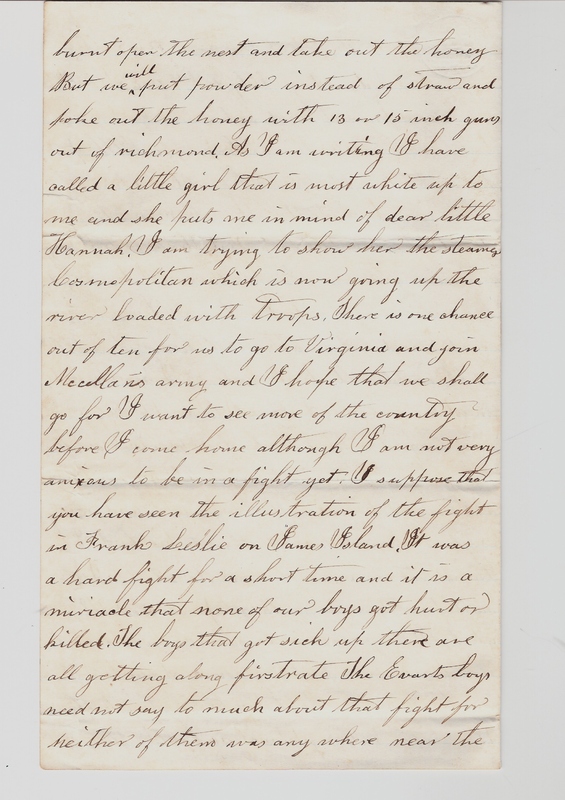 burnt open the nest and take out the honey
But we will put powder instead of straw and
poke out the honey with 13 or 15 inch guns
out of richmond. As I am writing I have
called a little girl that is most white up to
me and she puts me in mind of dear little
Hannah. I am trying to show her the steamer
Cosmopolitan which is now going up the
river loaded with troops. There is one chance
out of ten for us to go to Virginia and join
Mcclellans army and I hope that we shall
go for I want to see more of the country
before I come home although I am not very
anixous to be in a fight yet. I suppose that
you have seen the illustration of the fight
in Frank Leslie on James Island. It was
a hard fight for a short time and it is a
miriacle that none of our boys got hurt or
killed. The boys that got sick up there are
all getting along firstrate The Evarts boys
need not say to much about that fight for
neither of them was any where near the